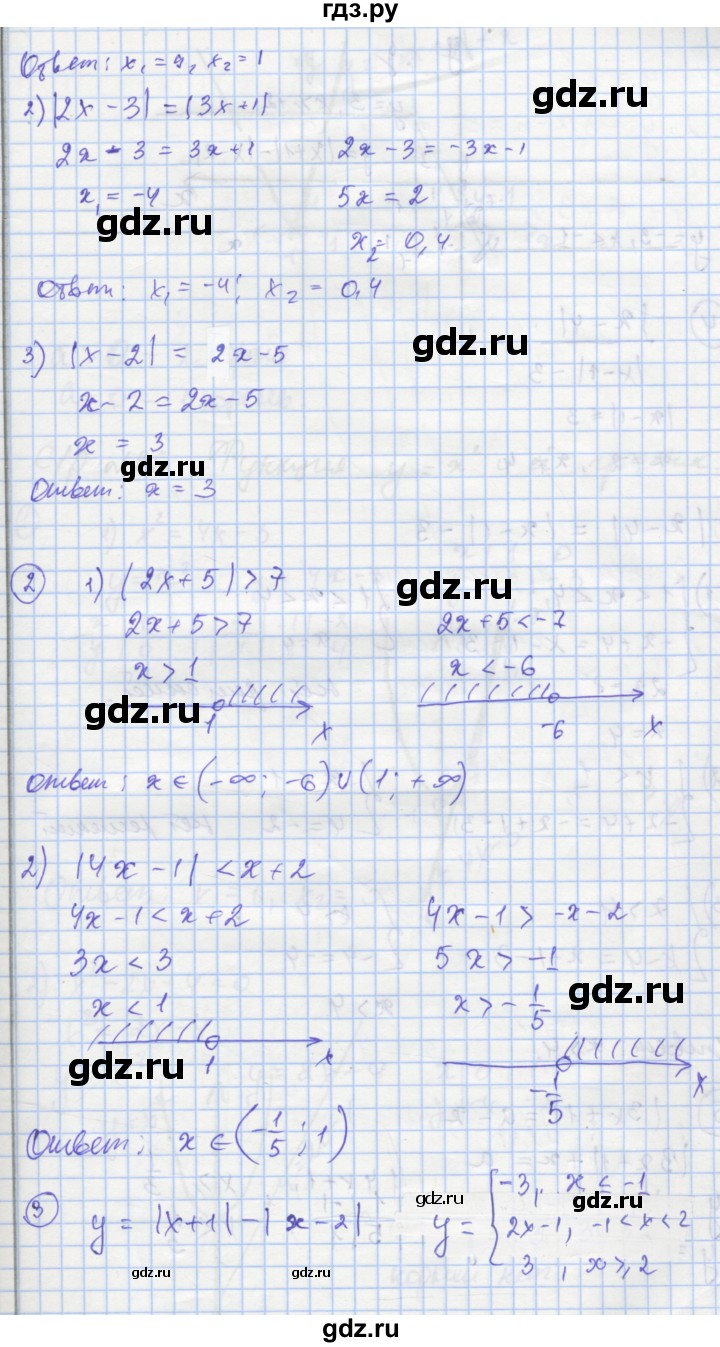 гдз.ру
Ответ: x₁ = 9, x₂ = 1
2) |2x - 3| = |3x + 1|
2x - 3 = 3x + 1 2x - 3 = -3x - 1
x₁ = -4 5x = 2
gdz.ru
x₂ = 0,4
Ответ: x₁ = -4; x₂ = 0,4
gdz.ru
3) |x - 2| = 2x - 5
x - 2 = 2x - 5
x = 3
gdz.ru
Ответ: x = 3
2 1) |2x + 5| > 7
gdz.ru
2x + 5 > 7 2x + 5 < -7
x > 1 x < -6
gdz.ru
1 x -6 x
Ответ: x ∈ (-∞; -6) ∪ (1; +∞)
2) |4x - 1| < x + 2
4x - 1 < x + 2 4x - 1 > -x - 2
3x < 3 5x > -1
gdz.ru
x < 1 x > -1/5
gdz.ru
1 x -1/5 x
Ответ: x ∈ (-1/5; 1)
3 y = |x + 1| - |x - 2| y = { -3, x ≤ -1
gdz.ru gdz.ru
2x - 1, -1 < x < 2
3, x ≥ 2
gdz.ru gdz.ru
gdz.ru